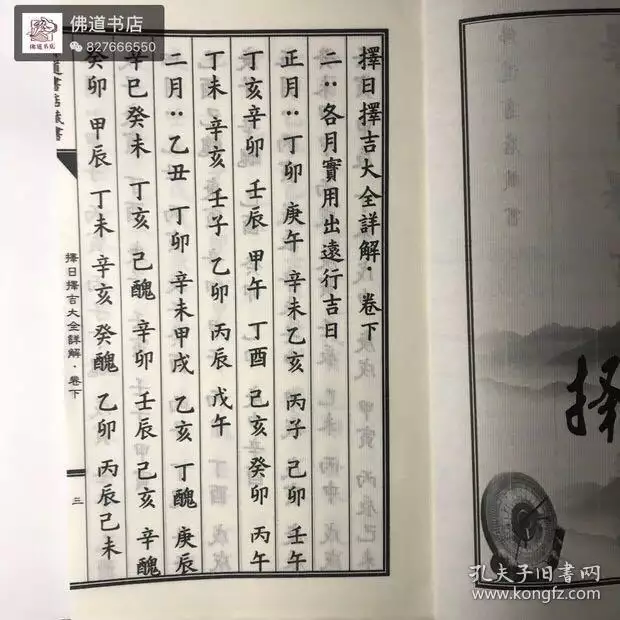 佛道书店
827666550
佛道书店
擇日擇吉大全詳解·卷下
二：各月實用出遠行吉日
正月：丁卯 庚午 辛未乙亥 丙子 己卯 壬午
丁亥辛卯 壬辰 甲午 丁酉 己亥癸卯 丙午
丁未 辛亥 壬子 乙卯 丙辰 戊午
二月：乙丑 丁卯 辛未甲戌 乙亥 丁醜 庚辰
辛巳癸未 丁亥 己醜 辛卯 壬辰己亥 辛醜
癸卯 甲辰 丁未 辛亥 癸醜 乙卯 丙辰己未
道書店藏書
擇日擇吉大全詳解·卷下
三
擇
孔夫子旧书网
kongfz.com